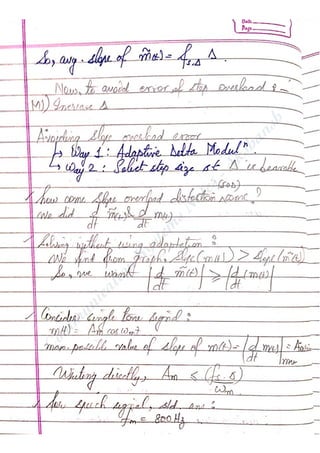 Date
Page
So, avg. slope of m̃(t) = fs.Δ Δ
Now, to avoid error of step overload :-
M1) Increase Δ
Avoiding slope overload error
↳ Way 1 : Adaptive Delta Modulⁿ
↳ Way 2 : Select step size st Δ is bearable
(SOD)
how come slope overload distortion ?
We did d/dt m̃(t) & d/dt m(t)
Solving without using adaptation :
We find from graph. Slope(m(t)) > Slope(m̃(t))
So, we want |d/dt m̃(t)| ≥ |d/dt m(t)|
Consider single tone signal :
m(t) = Am cos ωmt
max. possible value of slope of m(t) = |d/dt m(t)|max = Amωm
Writing directly, Am ≤ (fs.Δ)/ωm
for speech signal, std. are :
fm = 800Hz